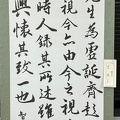 死生為虛誕齊彭
視今亦由今之視
時人錄其所述雖
興懷其致一也